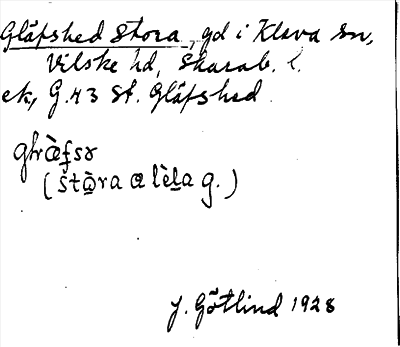 Gläfshed Stora, gd i Kleva sn,
Vilske hd, Skarab. l.
ek, G.43 St. Gläfshed
(stò̱ra a lèḻa g.)
J. Götlind 1928